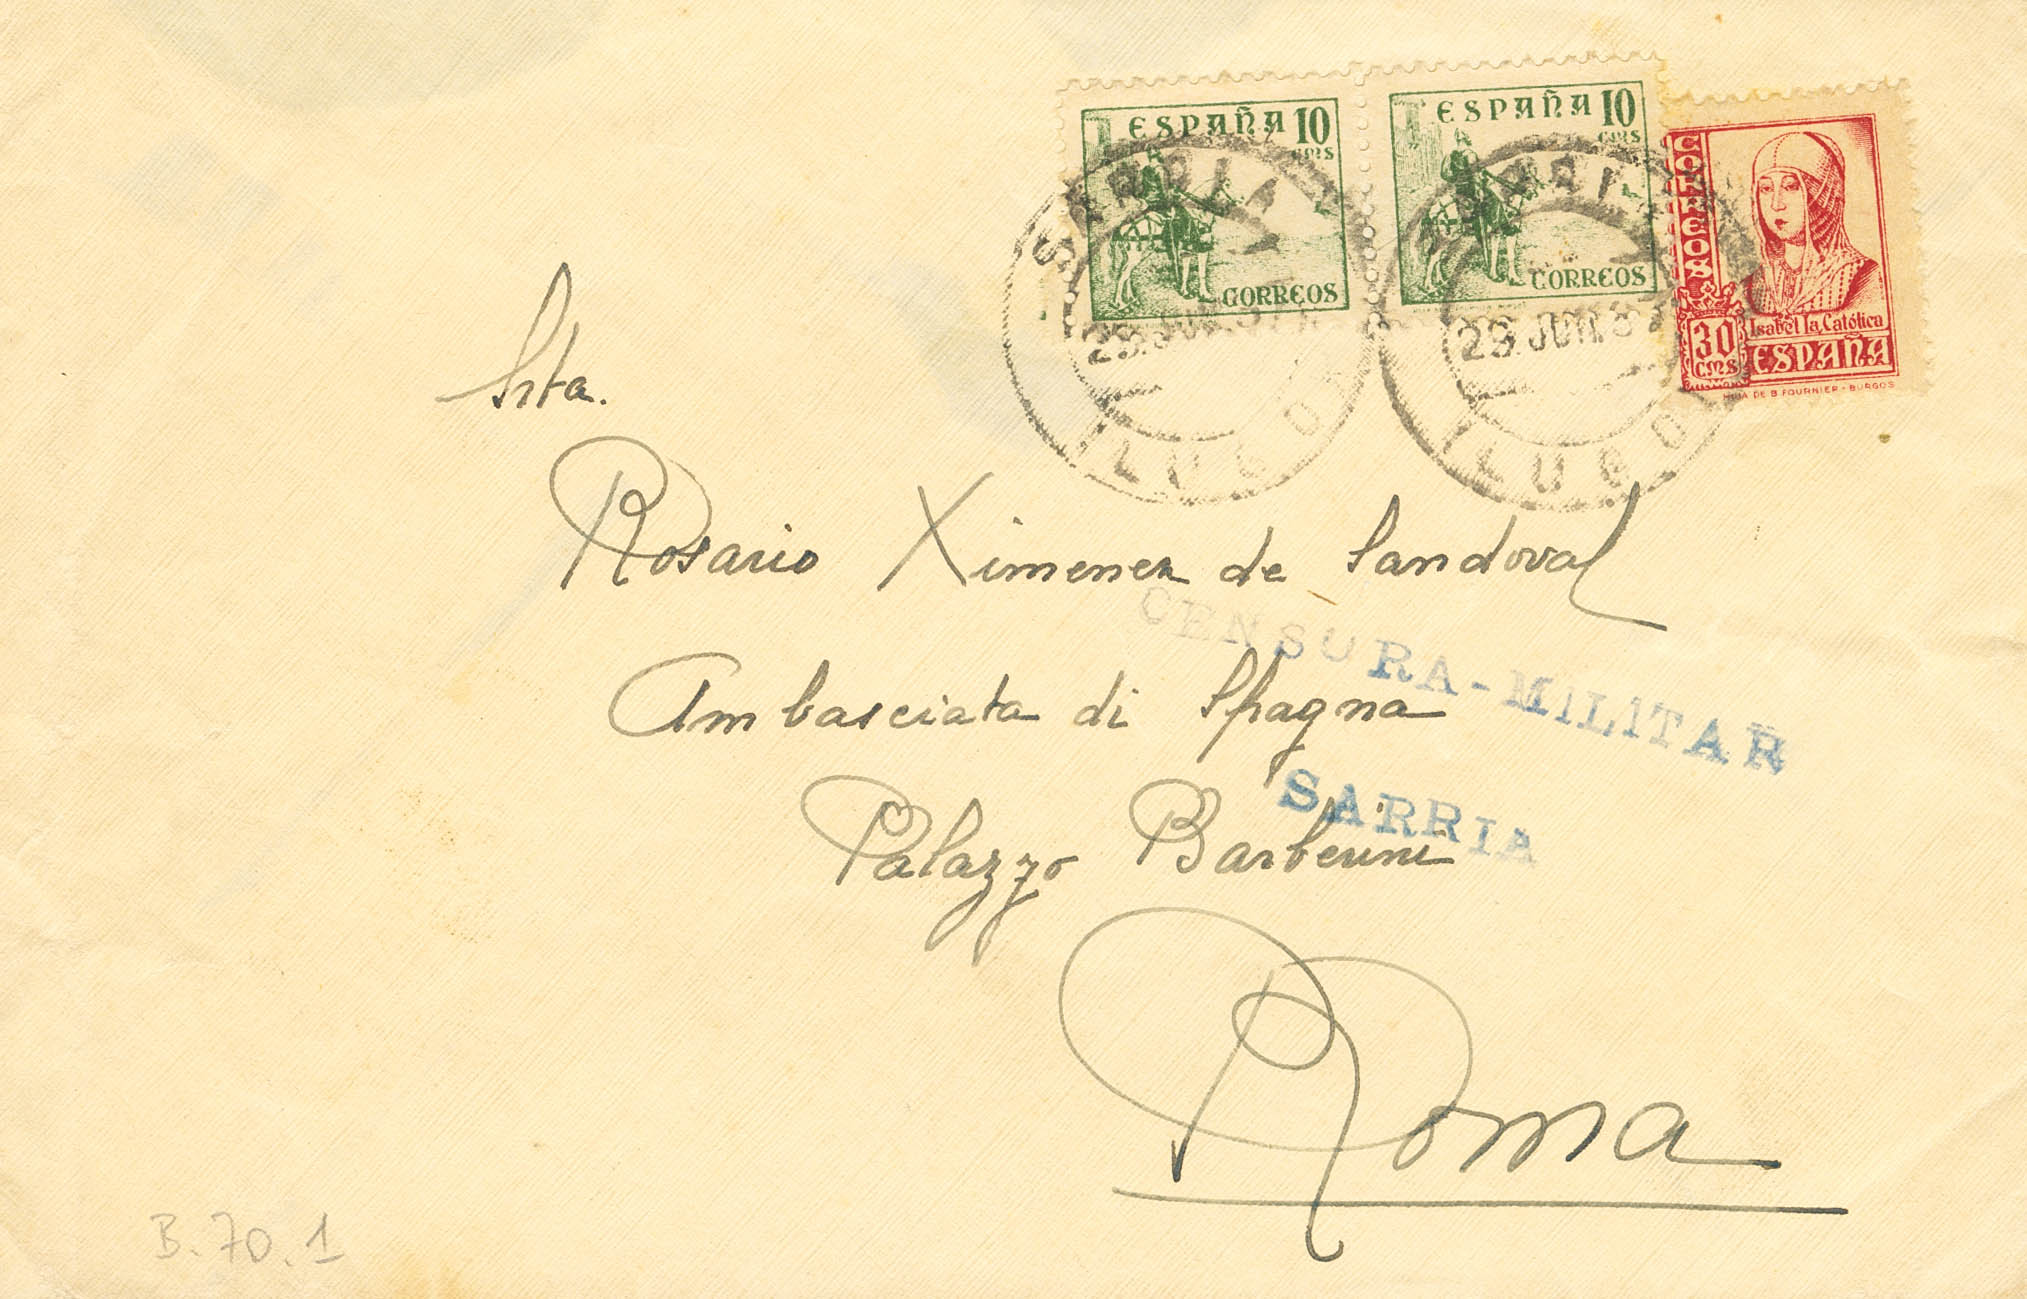 ESPAÑA 10
cms
CORREOS
ESPAÑA 10
cms
CORREOS
CORREOS
Isabel la Católica
30
cms
ESPAÑA
HIJA DE B. FOURNIER - BURGOS
SARRIA
29 JUN. 37
LUGO
SARRIA
29 JUN. 3
LUGO
Srta.
Rosario Ximenez de Sandoval
CENSURA-MILITAR
Ambasciata di Spagna
SARRIA
Palazzo Barberini
Roma
B.70.1